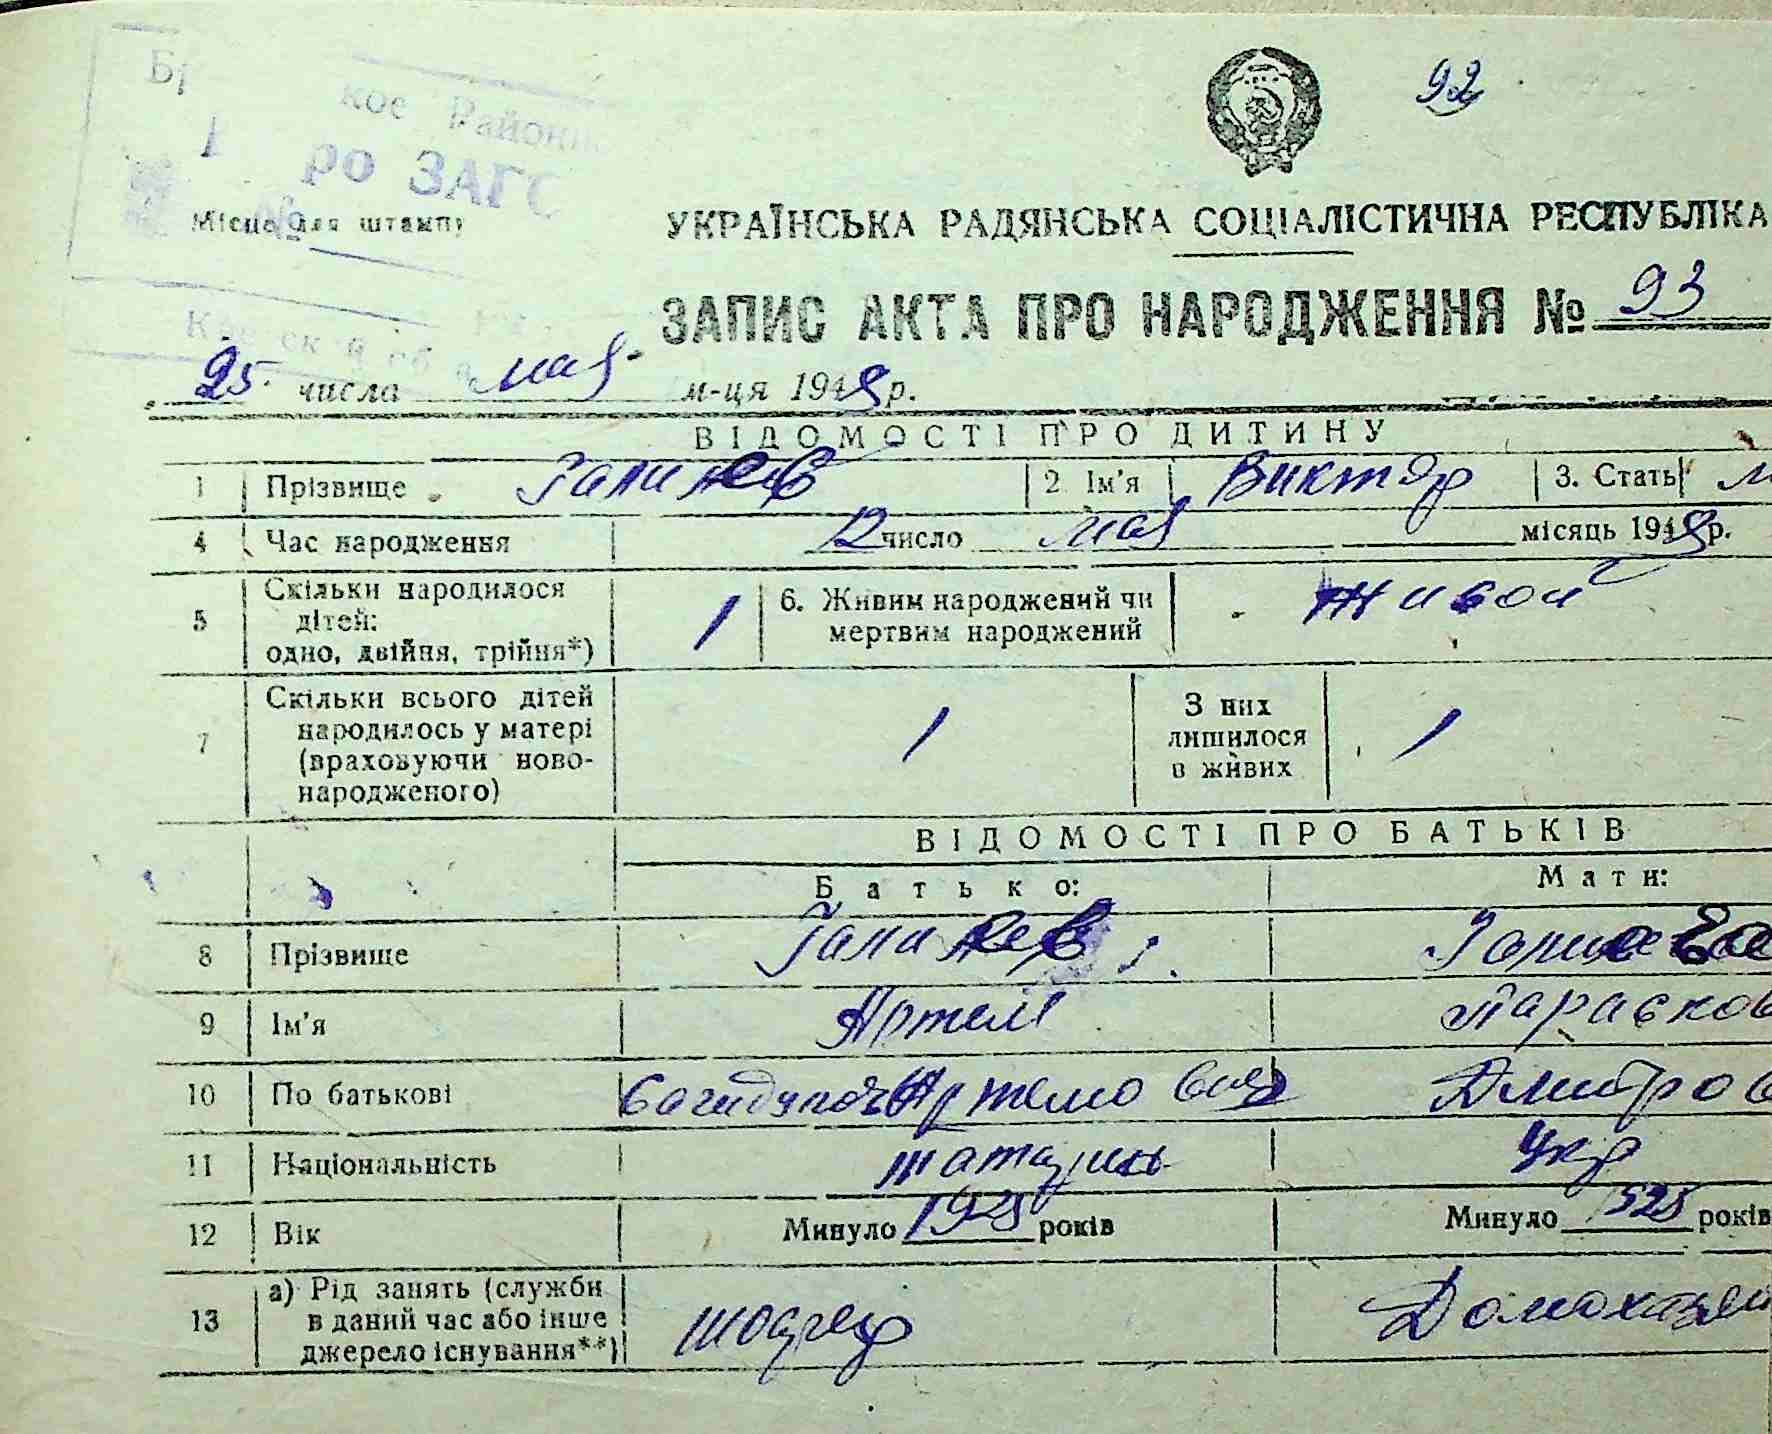 92
кое Районн
ро ЗАГС
Місце для штампу
УКРАЇНСЬКА РАДЯНСЬКА СОЦІАЛІСТИЧНА РЕСПУБЛІКА
ЗАПИС АКТА ПРО НАРОДЖЕННЯ № 93
25 числа мая м-ця 1948 р.
ВІДОМОСТІ ПРО ДИТИНУ
1 Прізвище 2. Ім'я Виктор 3. Стать м
4 Час народження 12 число мая місяць 1948 р.
5 Скільки народилося дітей: одно, двійня, трійня*) 1 6. Живим народжений чи мертвим народжений живой
7 Скільки всього дітей народилось у матері (враховуючи новонародженого) 1 З них лишилося в живих 1
ВІДОМОСТІ ПРО БАТЬКІВ
Батько: Мати:
8 Прізвище
9 Ім'я Артем Парасков
10 По батькові Артемович Дмитров
11 Національність татарин Укр
12 Вік Минуло 1925 років Минуло 1925 років
13 а) Рід занять (служби в даний час або інше джерело існування**) шофер Домохозяй